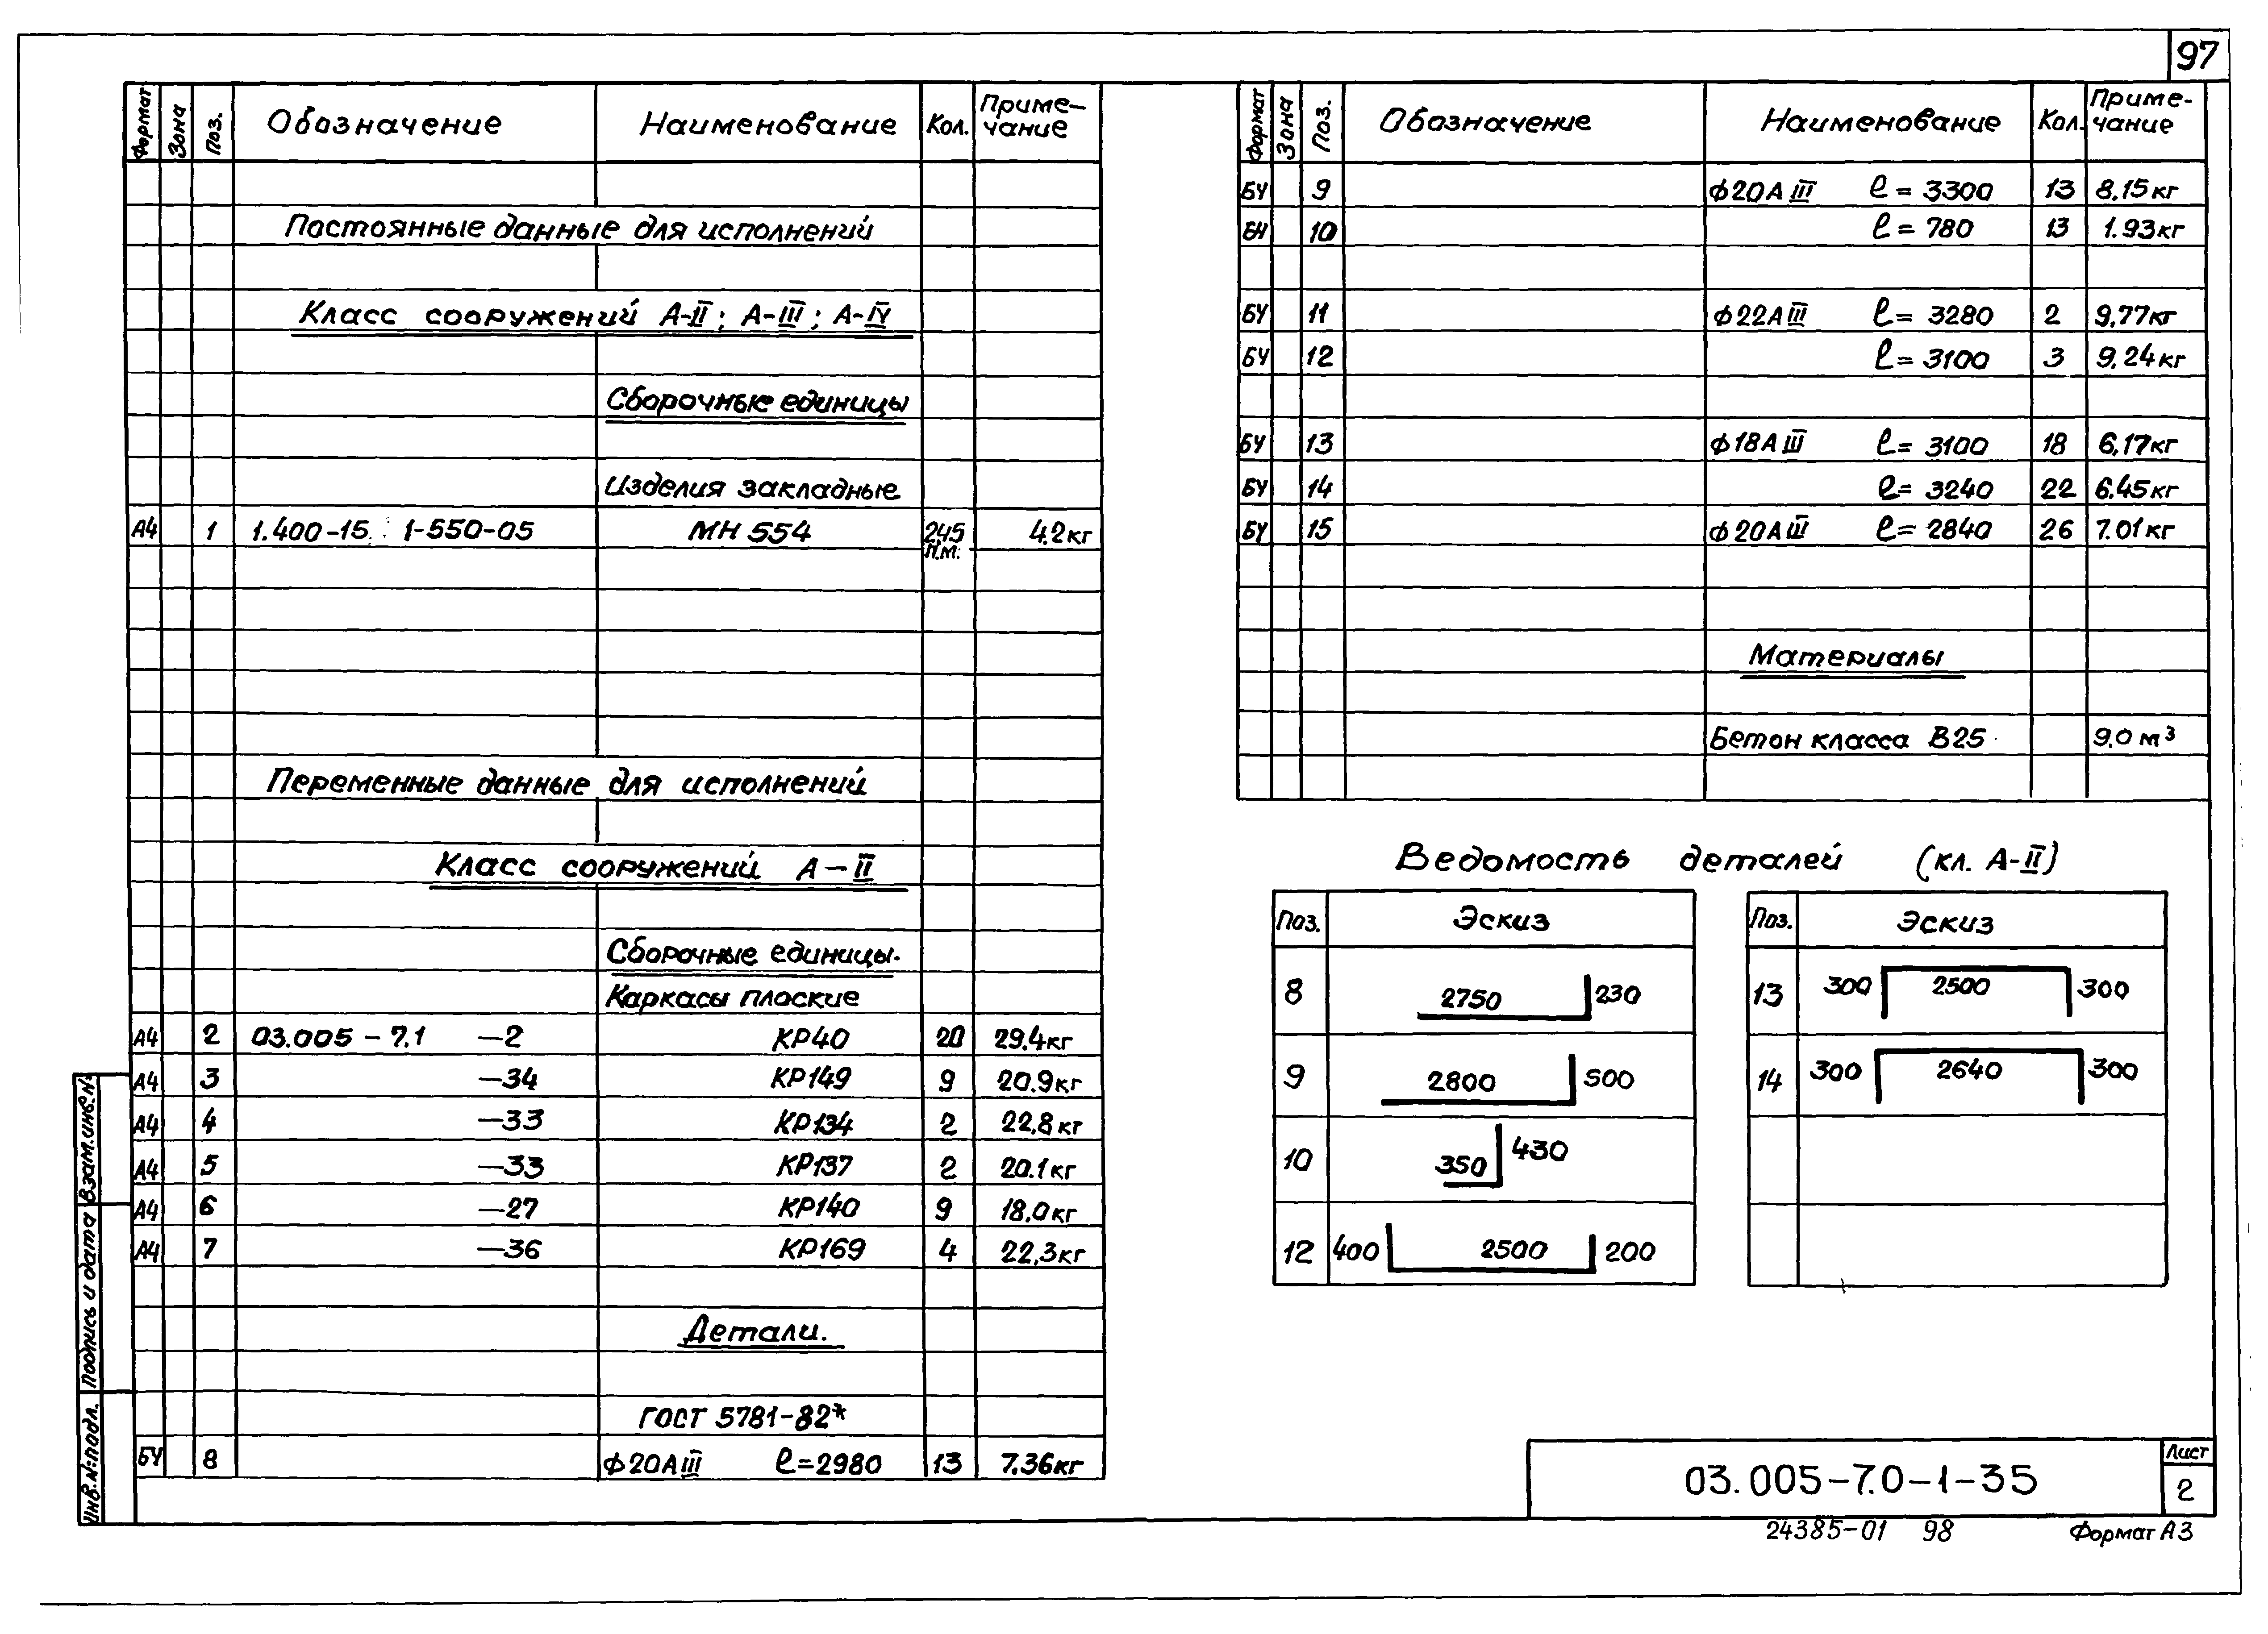 97
Формат Зона Поз. Обозначение Наименование Кол. Приме-чание
Постоянные данные для исполнений
Класс сооружений А-II; А-III; А-IV
Сборочные единицы
Изделия закладные
А4 1 1.400-15. 1-550-05 МН 554 245 п.м. 4.2кг
Переменные данные для исполнений
Класс сооружений А-II
Сборочные единицы.
Каркасы плоские
А4 2 03.005-7.1 -2 КР40 20 29.4кг
А4 3 -34 КР149 9 20.9кг
А4 4 -33 КР134 2 22,8кг
А4 5 -33 КР137 2 20.1кг
А4 6 -27 КР140 9 18,0кг
А4 7 -36 КР169 4 22,3кг
Детали.
ГОСТ 5781-82*
БЧ 8 ф20АIII ℓ=2980 13 7.36кг
Формат Зона Поз. Обозначение Наименование Кол. Приме-чание
БЧ 9 ф20АIII ℓ=3300 13 8,15кг
БЧ 10 ℓ=780 13 1.93кг
БЧ 11 ф22АIII ℓ=3280 2 9,77кг
БЧ 12 ℓ=3100 3 9,24кг
БЧ 13 ф18АIII ℓ=3100 18 6,17кг
БЧ 14 ℓ=3240 22 6.45кг
БЧ 15 ф20АIII ℓ=2840 26 7.01кг
Материалы
Бетон класса В25 9,0 м³
Ведомость деталей (кл. А-II)
Поз. Эскиз
8 2750 230
9 2800 500
10 350 430
12 400 2500 200
Поз. Эскиз
13 300 2500 300
14 300 2640 300
Взам.инв.№
Подпись и дата
Инв.№подл.
03.005-7.0-1-35
Лист
2
24385-01 98
Формат А3